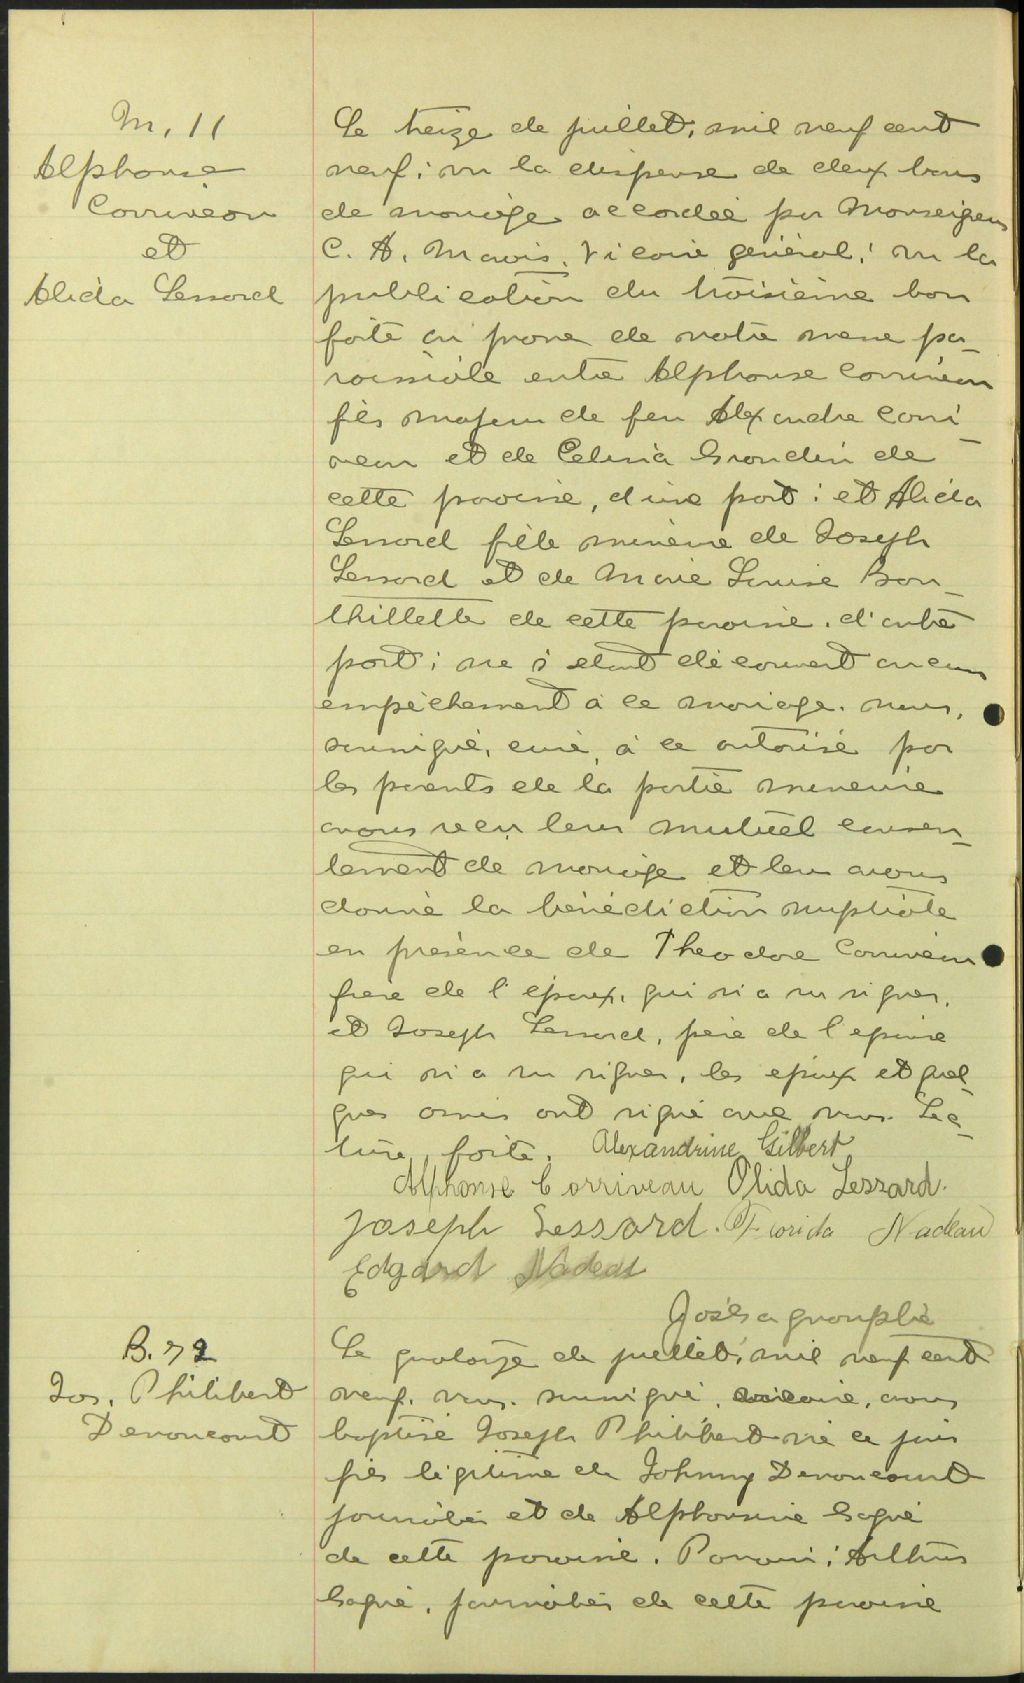 M. 11
Alphonse
Corriveau
et
Alida Lessard
Le treize de juillet, mil neuf cent
neuf; vu la dispense de deux bans
de mariage accordée par Monseigneur
C. A. Marois, Vicaire général; vu la
publication du troisième ban
faite au prone de notre messe pa-
roissiale entre Alphonse Corriveau
fils majeur de feu Alexandre Corri-
veau et de Celina Grondin de
cette paroisse, d'une part; et Alida
Lessard fille mineure de Joseph
Lessard et de Marie Louise Bou-
thillette de cette paroisse, d'autre
part; ne s'étant découvert aucun
empêchement à ce mariage, nous,
soussigné, curé, à ce autorisé par
les parents de la partie mineure
avons reçu leur mutuel consen-
tement de mariage et leur avons
donné la bénédiction nuptiale
en présence de Theodore Corriveau
frère de l'époux, qui n'a su signer,
et Joseph Lessard, père de l'épouse
qui n'a su signer, les époux et quel-
ques amis ont signé avec nous. Lec-
ture faite. Alexandrine Gilbert
Alphonse Corriveau Olida Lessard.
Joseph Lessard. Florida Nadeau
Edgard Nadeau
B. 72
Jos. Philibert
Devoncourt
Le quatorze de juillet, mil neuf cent
neuf, nous, soussigné, vicaire, avons
baptisé Joseph Philibert né ce jour
fils légitime de Johnny Devoncourt
journalier et de Alphonsine Gagné
de cette paroisse. Parrain; Arthur
Gagné, journalier de cette paroisse